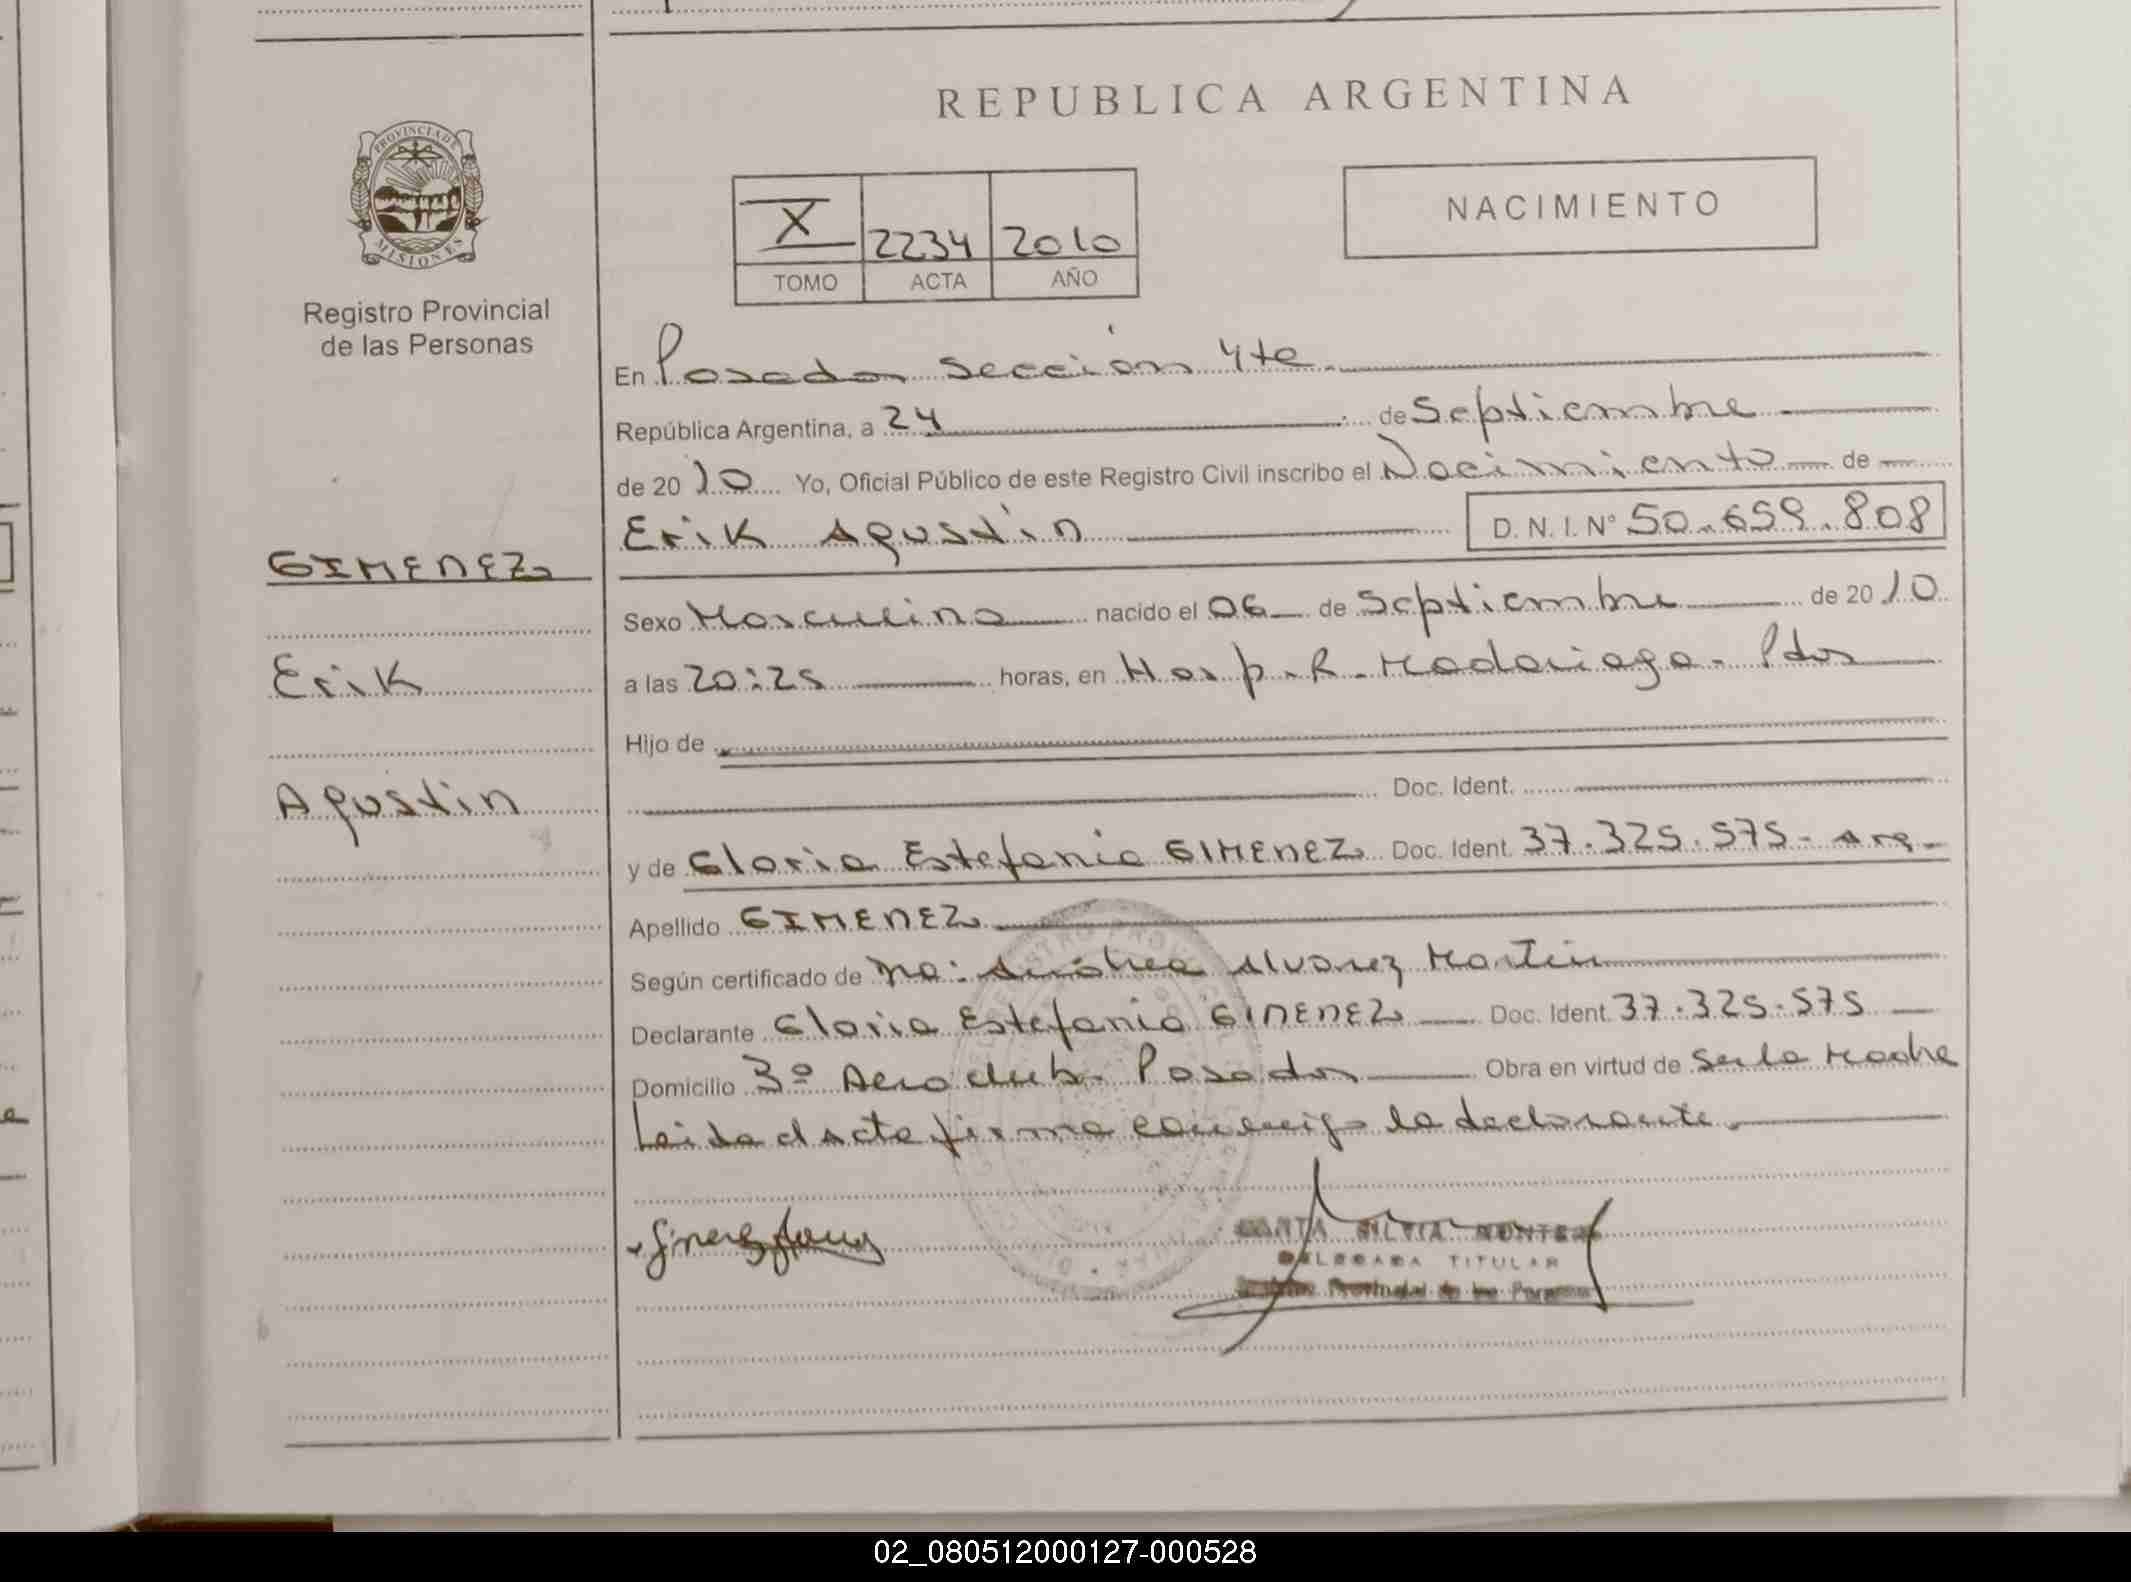 REPUBLICA ARGENTINA
PROVINCIA DE MISIONES
Registro Provincial
de las Personas
X 2234 2010
TOMO ACTA AÑO
NACIMIENTO
En Posadas Sección 4ta
República Argentina, a 24 de Septiembre
de 2010 Yo, Oficial Público de este Registro Civil inscribo el Nacimiento de
Erik Agustín D. N. I. N° 50.659.808
GIMENEZ
Erik
Agustin
Sexo Masculino nacido el 06 de Septiembre de 2010
a las 20:25 horas, en Hosp. R. Madariaga - Pdas
Hijo de
Doc. Ident.
y de Gloria Estefania GIMENEZ Doc. Ident. 37.325.575 - Arg.
Apellido GIMENEZ
Según certificado de Alvarez Martin
Declarante Gloria Estefania GIMENEZ Doc. Ident. 37.325.575
Domicilio 3º Aeroclub. Posadas Obra en virtud de Ser la Madre
Leida el acta firma conmigo la declarante.
DELEGADA TITULAR
Provincial de las Personas
02_080512000127-000528